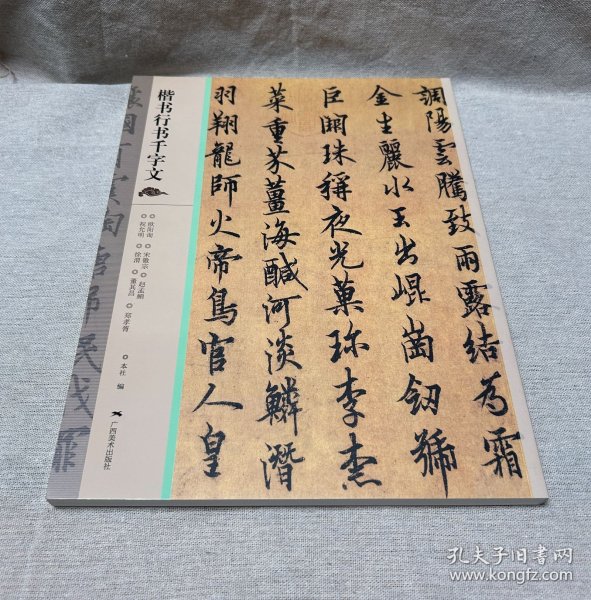 調陽雲騰致雨露結為霜
金生麗水玉出崐崗劒號
巨闕珠稱夜光菓珎李柰
菜重芥薑海醎河淡鱗潛
羽翔龍師火帝鳥官人皇
楷书行书千字文
欧阳询 宋徽宗 赵孟頫
祝允明 徐渭 董其昌 郑孝胥
本社 编
广西美术出版社
國有虞陶唐弔民伐罪
孔夫子旧书网
www.kongfz.com